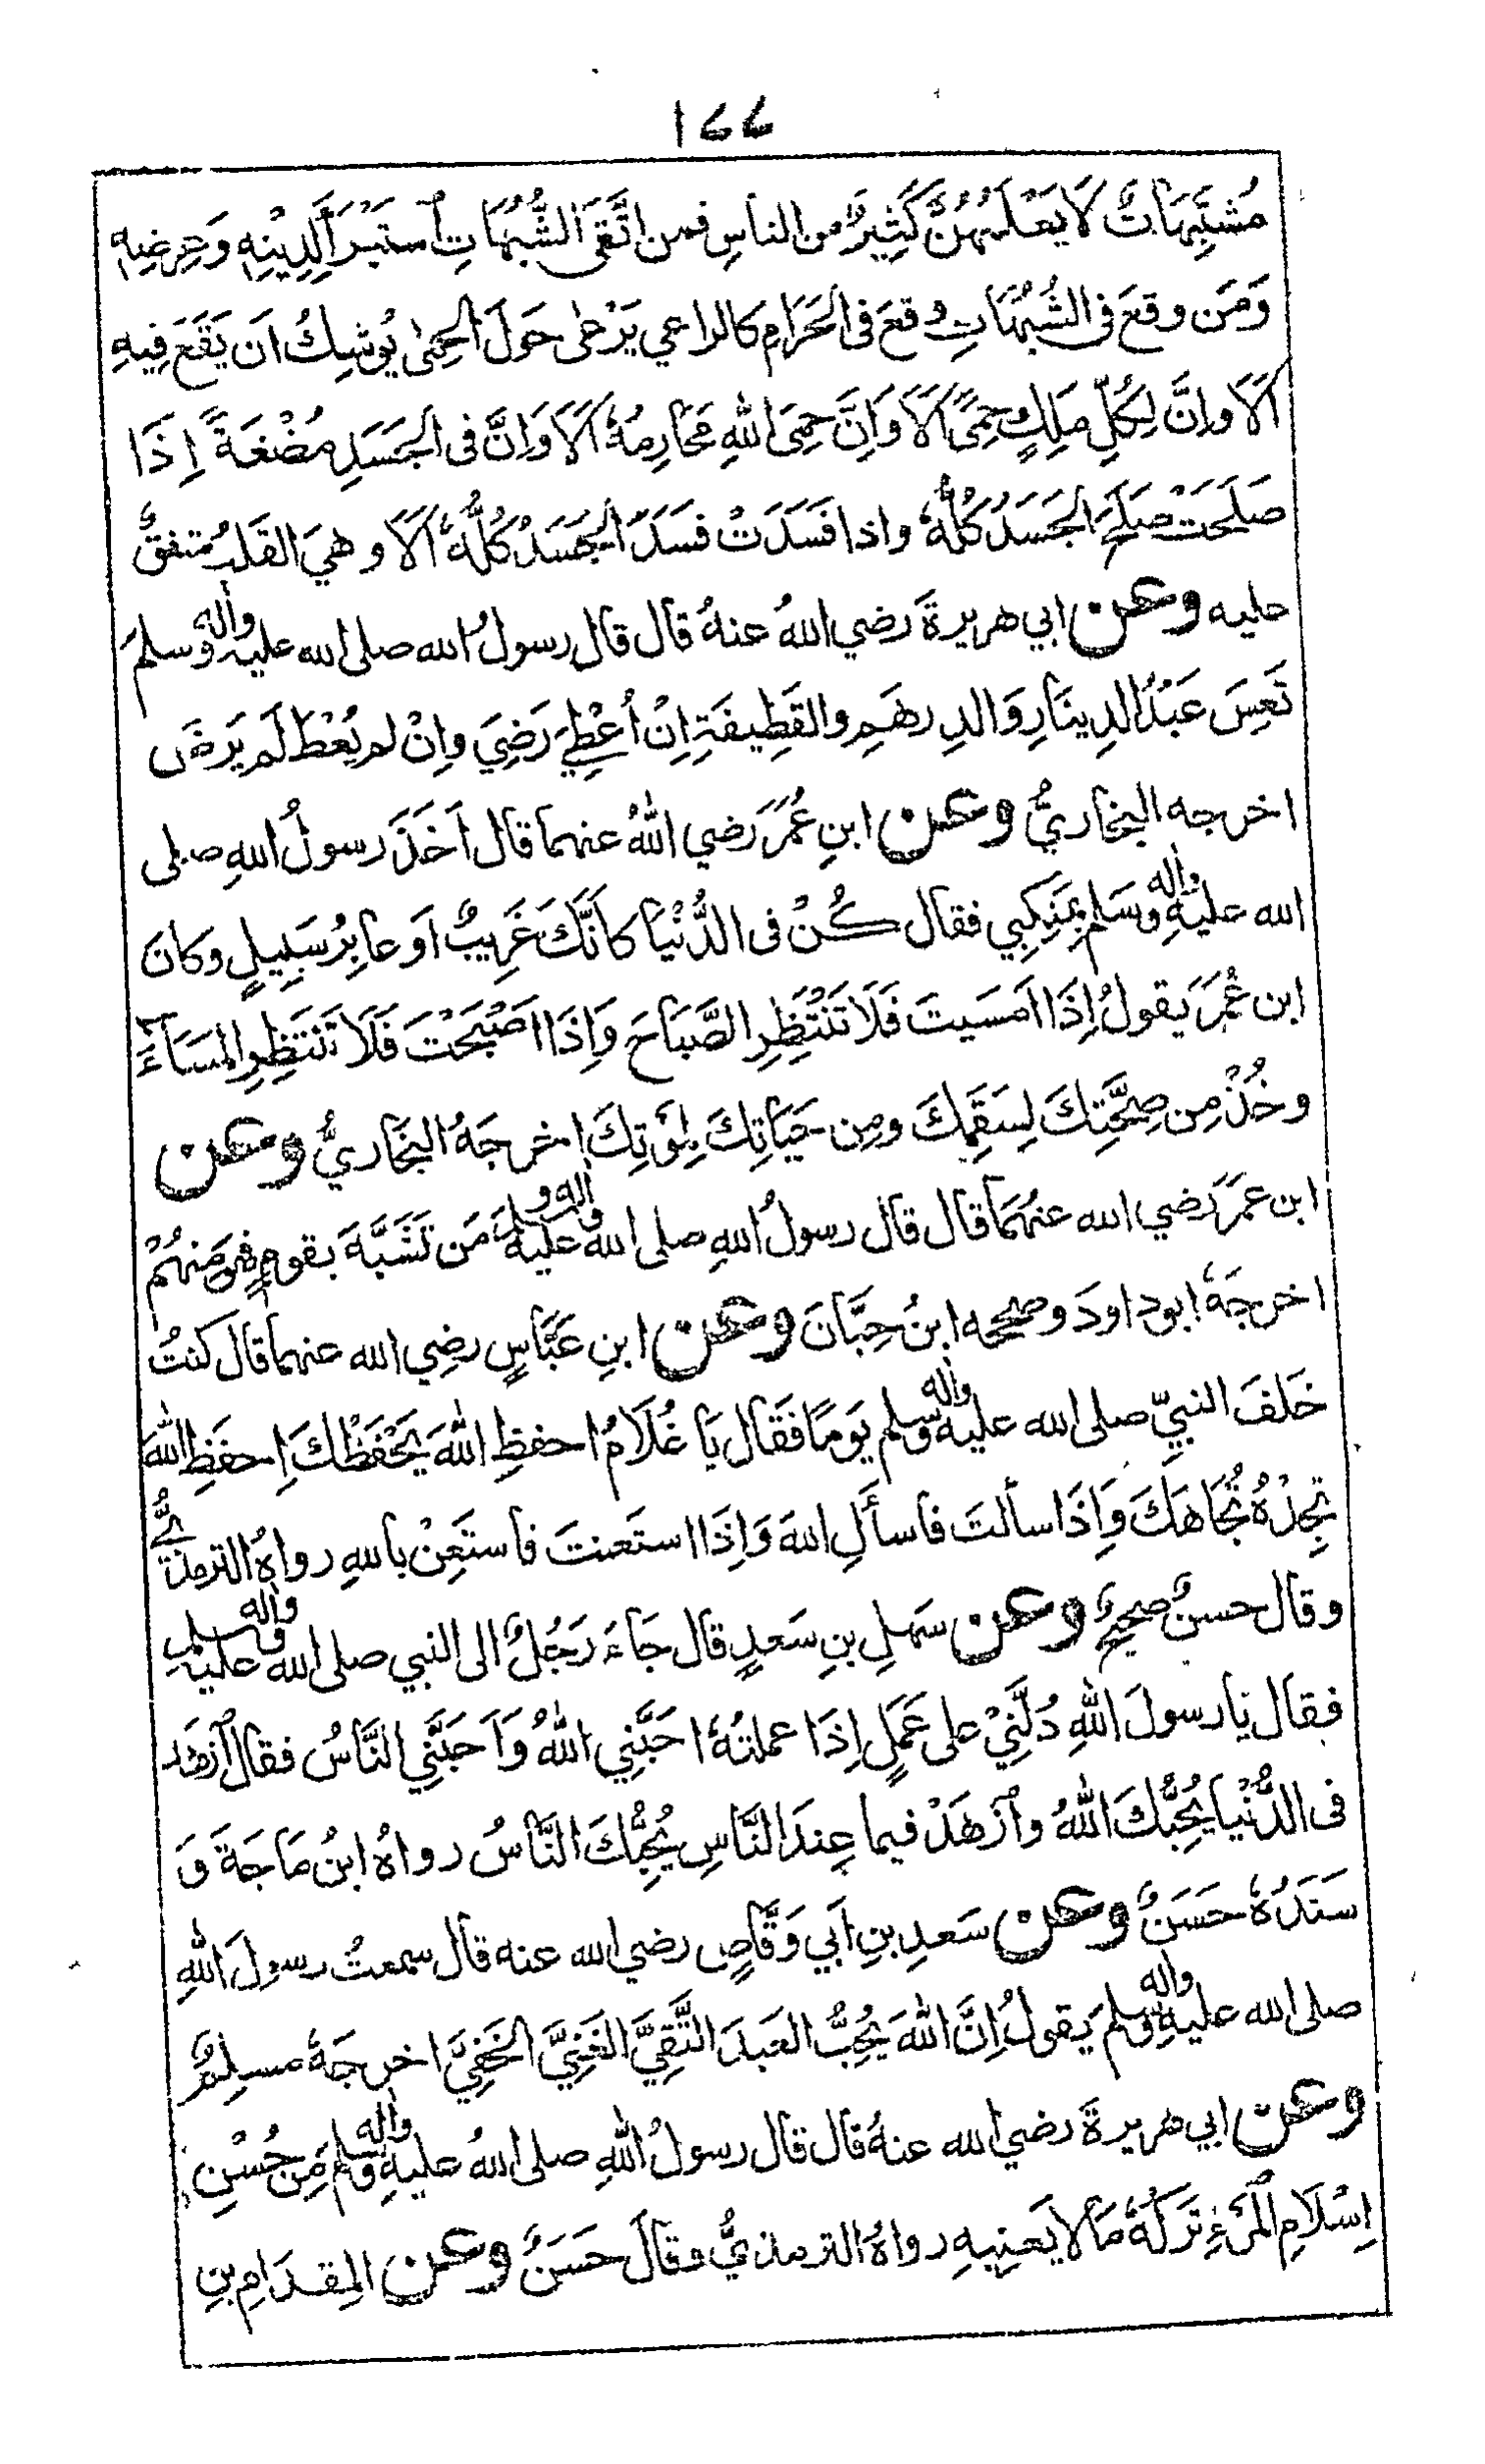 ١٤٤
مُشتَبِهَاتٌ لَا يَعْلَمُهُنَّ كَثِيرٌ من الناسِ فمن اتَّقَى الشُّبُهَاتِ استَبْرَأَ لِدِينِهِ وَعِرضِهِ
وَمَن وقعَ فى الشُبُهَاتِ وقعَ فى الحَرَامِ كالراعي يَرْعٰى حَولَ الحِمٰى يُوشِكُ اَن يَقَعَ فِيهِ
اَلَا واِنَّ لِكُلِّ مَلِكٍ حِمًى اَلَا وَاِنَّ حِمَى اللهِ مَحَارِمُهُ اَلَا وَاِنَّ فى الجَسَدِ مُضْغَةً اِذَا
صَلَحَتْ صَلَحَ الجَسَدُ كُلُّهُ واذا فَسَدَتْ فَسَدَ الجَسَدُ كُلُّهُ اَلَا وهيَ القَلبُ متفقٌ
عليه وعن ابي هريرةَ رضي اللهُ عنهُ قال قال رسولُ الله صلى الله عليه واٰله وسلمَ
تَعِسَ عَبْدُ الدِينَارِ وَالدِرهَمِ والقَطِيفَةِ اِنْ اُعْطِيَ رَضِيَ واِنْ لم يُعْطَ لَم يَرضَ
اخرجه البخاريُّ وعن ابنِ عُمَرَ رضي اللهُ عنهما قال اَخَذَ رسولُ اللهِ صلى
الله عليهِ واٰله وسَلم بِمَنكِبِي فقال كُنْ فى الدُّنْيَا كاَنَّكَ غَرِيبٌ اَو عابِرُ سَبِيلٍ وكانَ
ابن عُمَرَ يقولُ اِذَا اَمسَيتَ فَلَا تَنْتَظِرِ الصَّبَاحَ وَاِذَا اَصْبَحْتَ فَلَا تَنتَظِرِ المَسَآءَ
وخُذْ مِن صِحَّتِكَ لِسَقَمِكَ ومِن حَيَاتِكَ لِمَوتِكَ اخرجَهُ البُخَاريُّ وعن
ابن عمرَ رَضي الله عنهُمَا قال قال رسولُ اللهِ صلى الله عليهِ واٰله وسلمَ مَن تَشَبَّهَ بقومٍ فهو مِنهُمْ
اخرجَهُ ابو داودَ وصححه ابنُ حِبَّانَ وعن ابنِ عَبَّاسٍ رضِي الله عنهما قال كنتُ
خَلفَ النبيِّ صلى الله عليه واٰله وسلم يَومًا فَقَال يَا غُلَامُ احفظِ اللهَ يَحْفَظْكَ اِحفَظِ اللهَ
تَجِدْهُ تُجَاهَكَ وَاِذَا سألتَ فاسأَلِ اللهَ وَاِذَا استَعنتَ فاستَعِنْ باللهِ رواهُ الترمذيُّ
وقال حسنٌ صحيحٌ وعن سَهلِ بنِ سَعدٍ قال جَاءَ رَجُلٌ الى النبي صلى الله عليه واٰله وسلم
فقال يا رسولَ اللهِ دُلَّنِيْ على عَمَلٍ اِذَا عملتُهُ احَبَّنِي اللهُ وَاَحَبَّنِي النَّاسُ فقال ازهَد
فى الدُّنْيا يُحِبُّكَ اللهُ وازهَدْ فيما عِندَ النَّاسِ يُحِبُّكَ النَّاسُ رواهُ ابنُ مَاجَةَ وَ
سَنَدُهُ حَسَنٌ وعن سَعدِ بنِ اَبي وَقَّاصٍ رضي الله عنه قال سمعتُ رسولَ اللهِ
صلى الله عليهِ واٰله وسلمَ يَقولُ اِنَّ اللهَ يُحِبُّ العَبدَ التَّقِيَّ الغَنِيَّ الخَفِيَّ اخرجَهُ مسلِمٌ
وعن ابي هريرةَ رضي الله عنهُ قال قال رسولُ اللهِ صلى اللهُ عليهِ واٰله وسلم مِن حُسْنِ
اِسْلَامِ المَرْءِ تَركُهُ مَا لا يَعنِيهِ رواهُ الترمذيُّ وقَالَ حَسَنٌ وعن المِقدَامِ بنِ